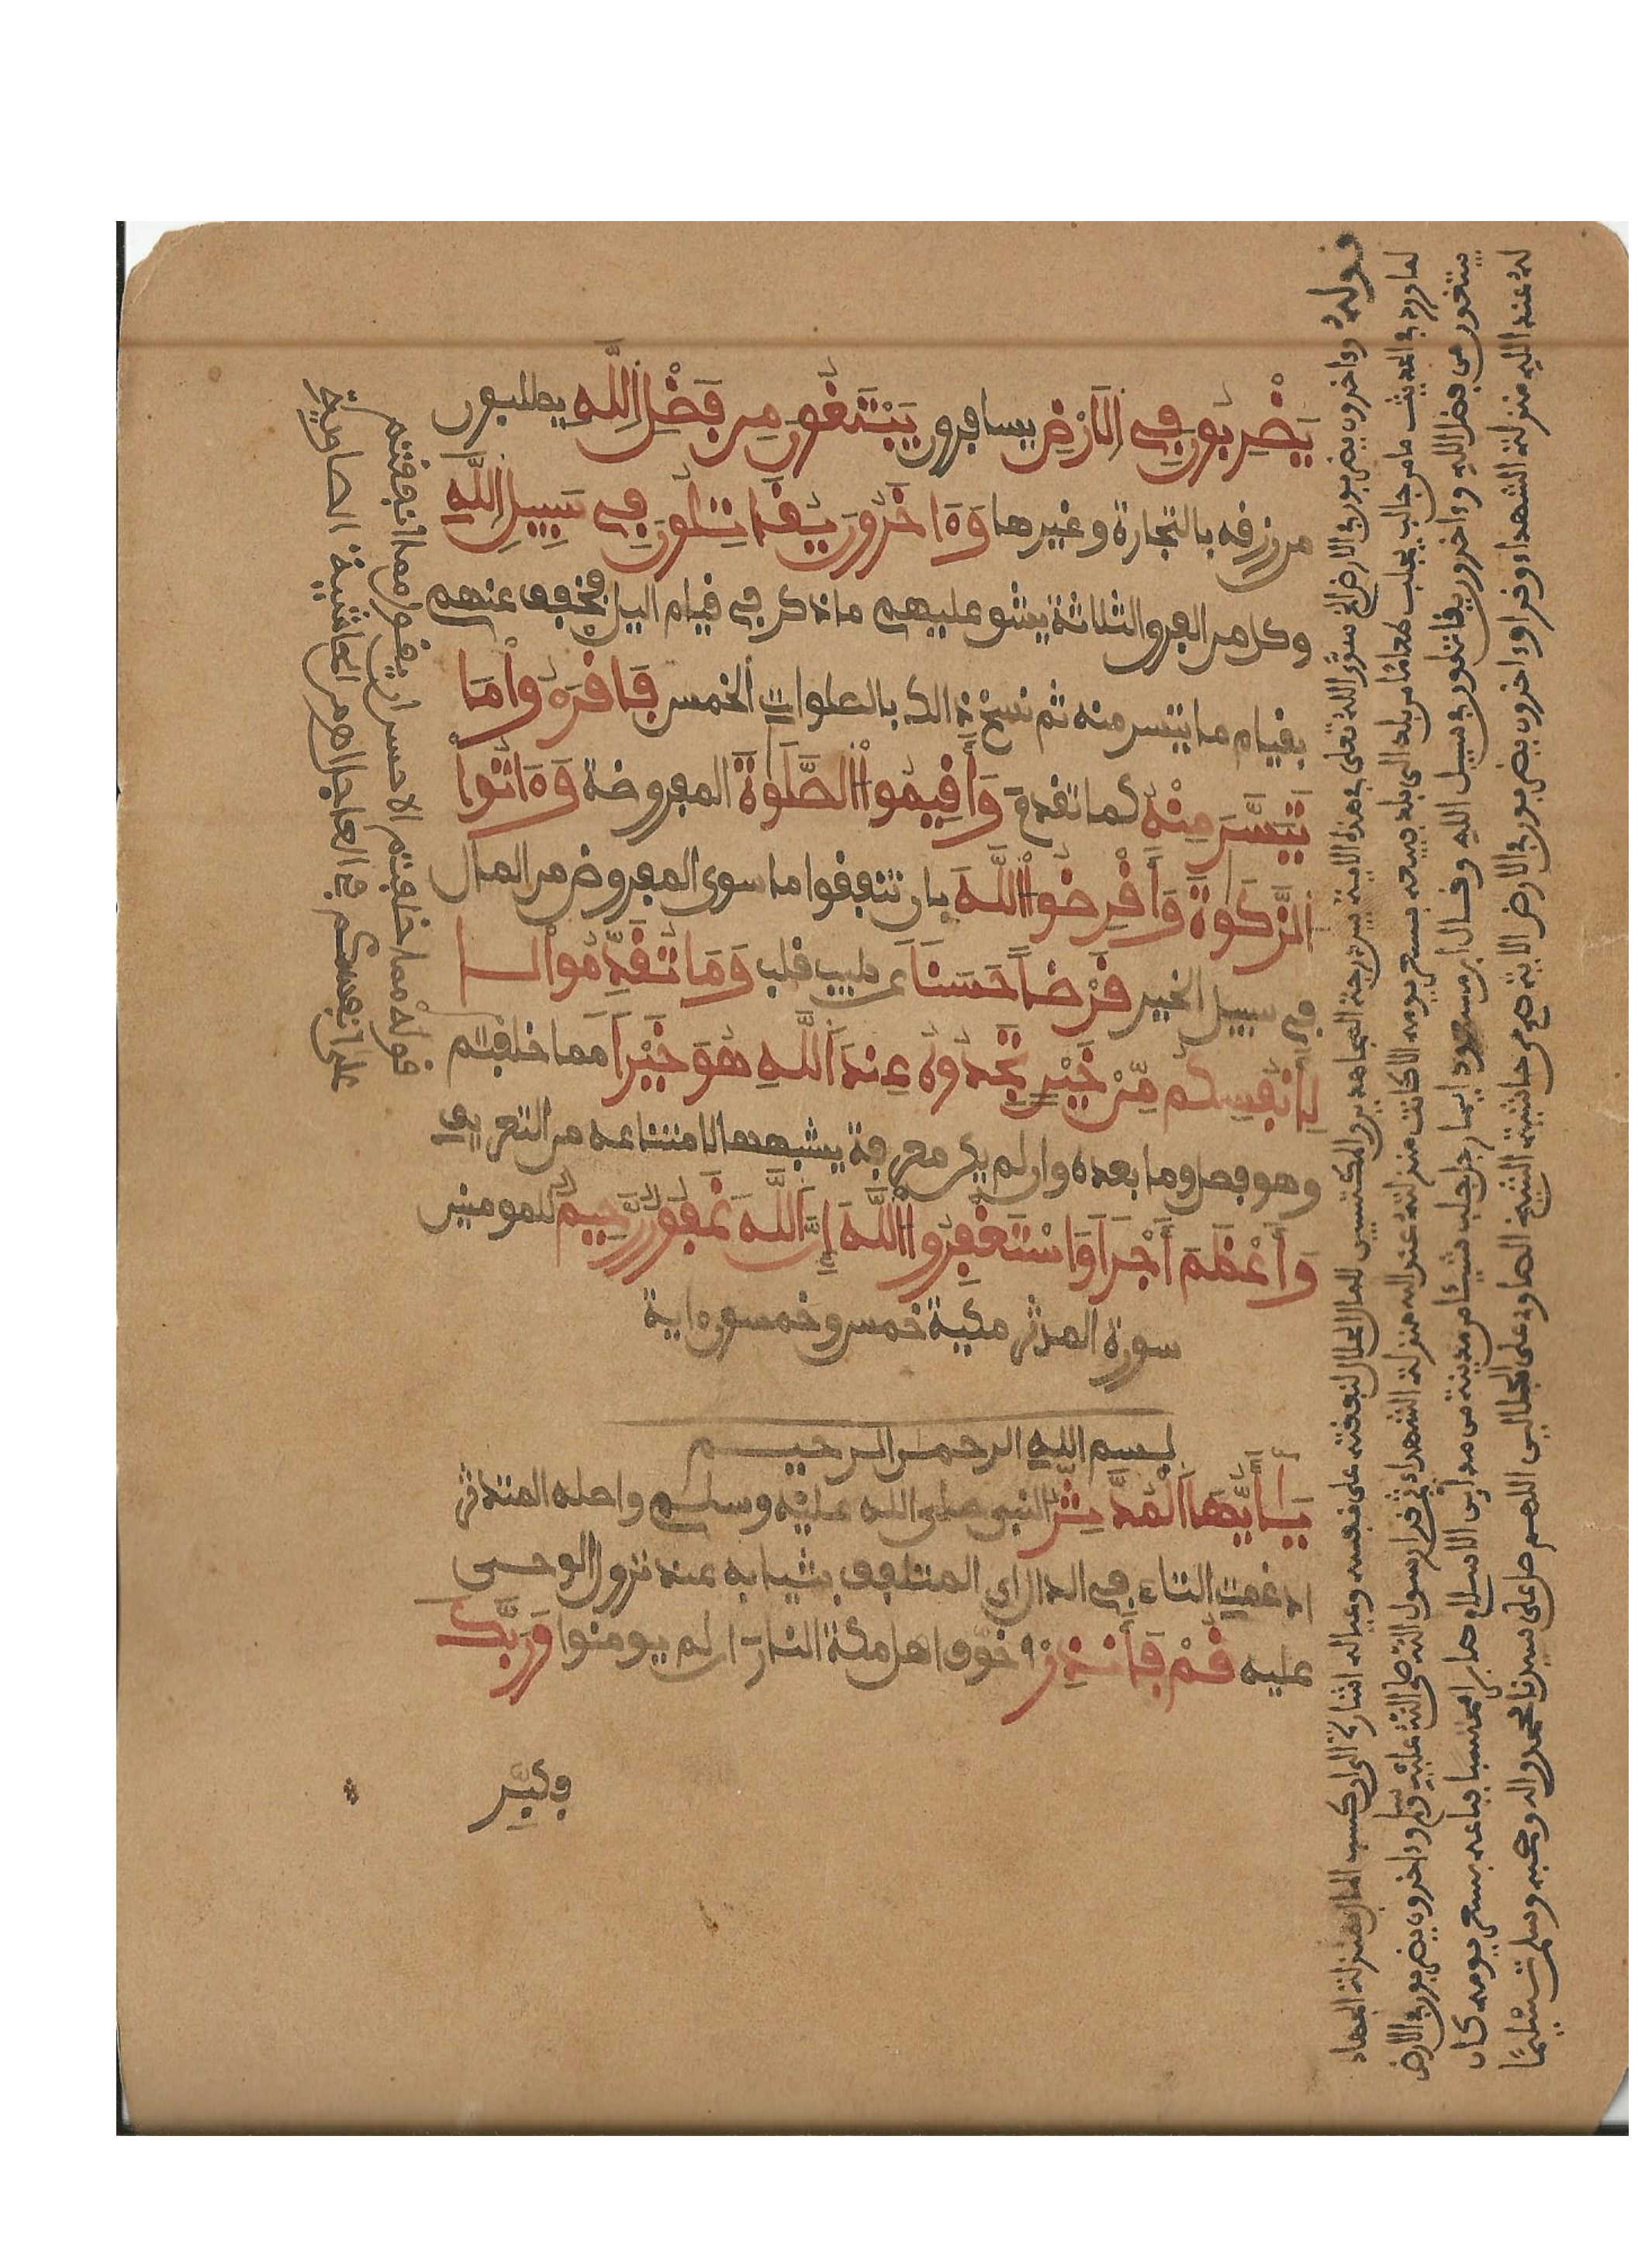 يَضْرِبُونَ فِي الْأَرْضِ يسافرون يَبْتَغُونَ مِن فَضْلِ اللَّهِ يطلبون
من رزقه بالتجارة وغيرها وَءَاخَرُونَ يُقَاتِلُونَ فِي سَبِيلِ اللَّهِ
وكل من الفرق الثلاثة يشق عليهم ما ذكر في قيام اليل فخفف عنهم
بقيام ما تيسر منه ثم نسخ ذالك بالصلوات الخمس فَاقْرَءُوا مَا
تَيَسَّرَ مِنْهُ كما تقدم وَأَقِيمُوا الصَّلَوٰةَ المفروضة وَءَاتُوا
الزَّكَوٰةَ وَأَقْرِضُوا اللَّهَ بان تنفقوا ما سوى المفروض من المال
في سبيل الخير قَرْضًا حَسَنًا عن طيب قلب وَمَا تُقَدِّمُوا
لِأَنفُسِكُم مِّنْ خَيْرٍ تَجِدُوهُ عِندَ اللَّهِ هُوَ خَيْرًا مما خلفتم
وهو فصل وما بعده وان لم يكن معرفة يشبهها لامتناعه من التعريف
وَأَعْظَمَ أَجْرًا وَاسْتَغْفِرُوا اللَّهَ إِنَّ اللَّهَ غَفُورٌ رَّحِيمٌ للمومنين
سورة المدثر مكية خمس وخمسون اية
بسم الله الرحمن الرحيم
يَٰأَيُّهَا الْمُدَّثِّرُ النبي صلى الله عليه وسلم واصله المتدثر
ادغمت التاء في الدال اي المتلفف بثيابه عند نزول الوحي
عليه قُمْ فَأَنذِرْ خوف اهل مكة النار ان لم يومنوا وَرَبَّكَ
فكبّر
قوله وءاخرون يضربون في الارض الخ سوّى الله تعلى في هذه الاية بين درجة المجاهدين والمكتسبين للمال الحلال لنفقته على نفسه وعياله اشارة الى ان كسب المال بمنزلة الجهاد
لما ورد في الحديث ما من جالب يجلب طعاما من بلد الى بلد فيبيعه بسعر يومه الا كانت منزلته عند الله منزلة الشهداء ثم قرا رسول الله صلى الله عليه وسلم وءاخرون يضربون في الارض
يبتغون من فضل الله وءاخرون يقاتلون في سبيل الله وقال ابن مسعود ايما رجل جلب شيئا من مدينة من مدائن الاسلام صابرا محتسبا فباعه بسعر يومه كان
له عند الله منزلة الشهداء وقرا وءاخرون يضربون في الارض الاية هـ من حاشية الشيخ الصاوي على الجلالين اللهم صل على سيدنا محمد واله وصحبه وسلم تسليما
قوله مما خلفتم الاحسن ان يقول مما انفقتم
على انفسكم في العاجل هـ من الحاشية الصاوية